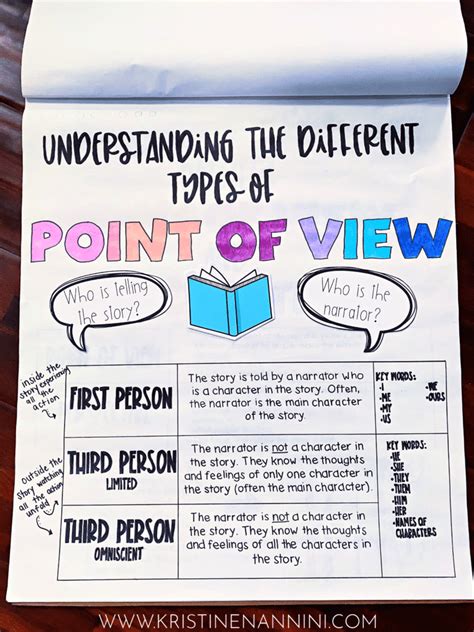 UNDERSTANDING THE DIFFERENT
TYPES OF
POINT OF VIEW
Who is telling
the story?
Who is the
narrator?
inside the
story experiencing
all the
action
FIRST PERSON
The story is told by a narrator who
is a character in the story. Often,
the narrator is the main character
of the story.
KEY WORDS:
-I
-ME
-MY
-US
-WE
-OURS
Outside the
story watching
all the action
unfold
THIRD PERSON
LIMITED
The narrator is not a character in
the story. They know the thoughts
and feelings of only one character in
the story (often the main character).
KEY WORDS:
-HE
-SHE
-THEY
-THEM
-HIM
-HER
-NAMES OF
CHARACTERS
THIRD PERSON
OMNISCIENT
The narrator is not a character in
the story. They know the thoughts
and feelings of all the characters in
the story.
WWW.KRISTINENANNINI.COM